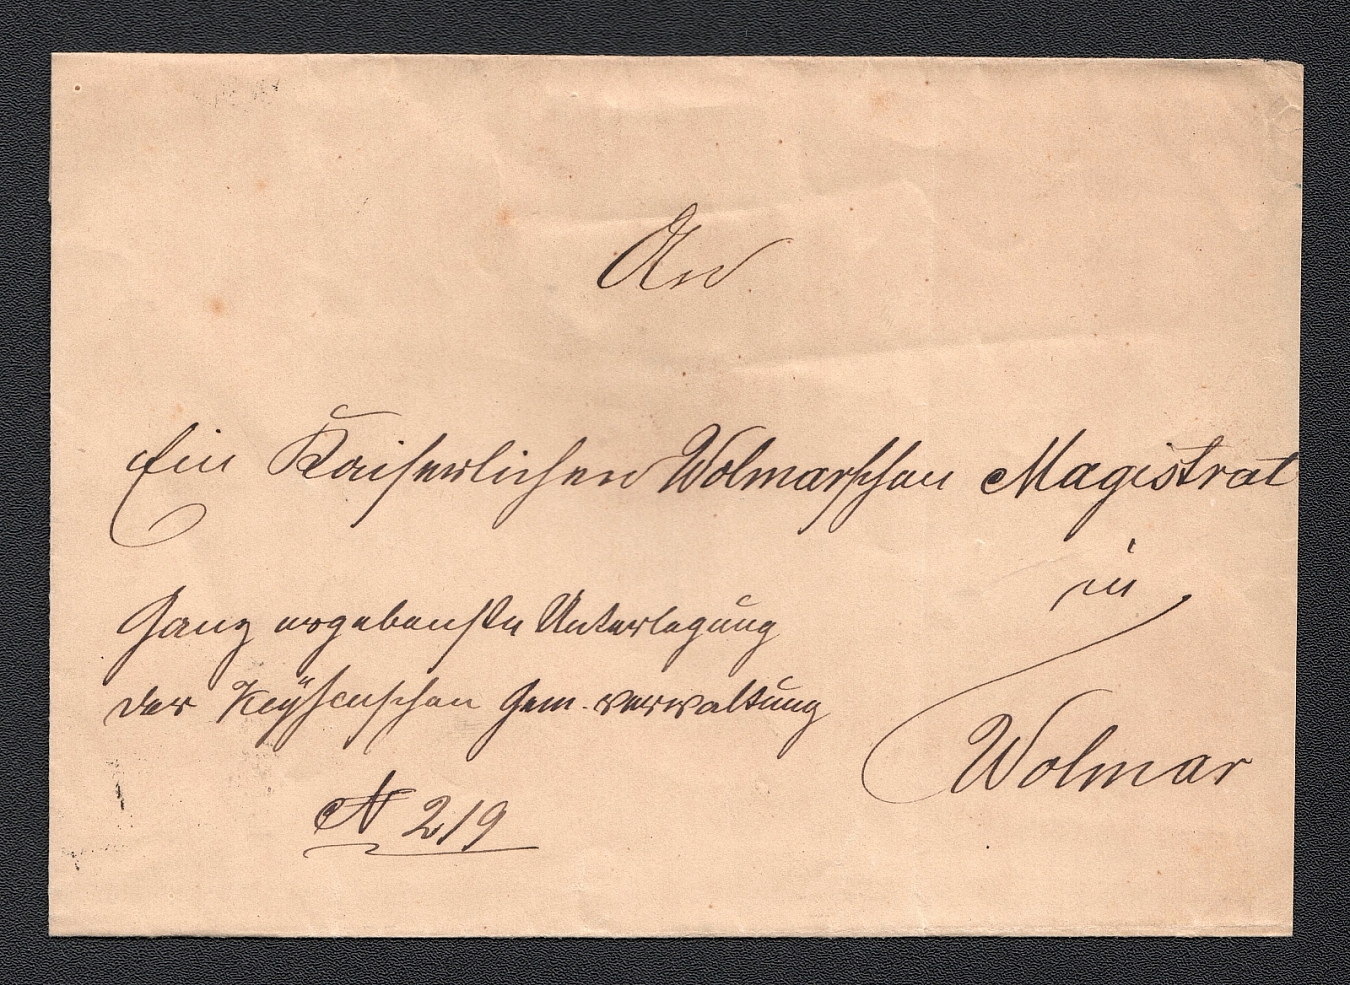 An
Ein Kaiserlichen Wolmarschen Magistrat
in
Wolmar
Ganz ergebenste Unterlegung
der Keyßenschen Gem. verwaltung
№ 219